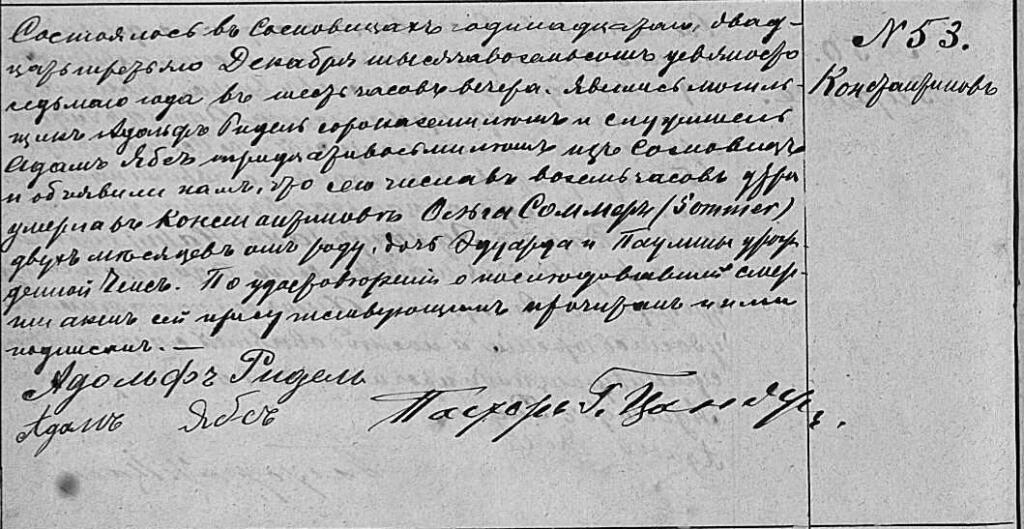 Состоялось въ Сосновицахъ одинадцатаго, двад-
цать третьяго Декабря тысяча восемьсотъ девяносто
седьмаго года въ шесть часовъ вечера. Явились могиль-
щикъ Адольфъ Ридель сорока семи лѣтъ и служитель
Адамъ Ябсъ тридцати восьми лѣтъ изъ Сосновицъ
и объявили намъ, что сего числа въ восемь часовъ утра
умерла въ Константиновѣ Ольга Соммеръ (Sommer)
двухъ мѣсяцевъ отъ роду, дочь Эдуарда и Паулины урож-
денной Чепсъ. По удостовѣреніи о послѣдовавшей смер-
ти актъ сей присутствующимъ прочитанъ и ими
подписанъ. —
Адольфъ Ридель
Адамъ Ябсъ
Пасторъ Г. Цандеръ.
N 53.
Константиновъ